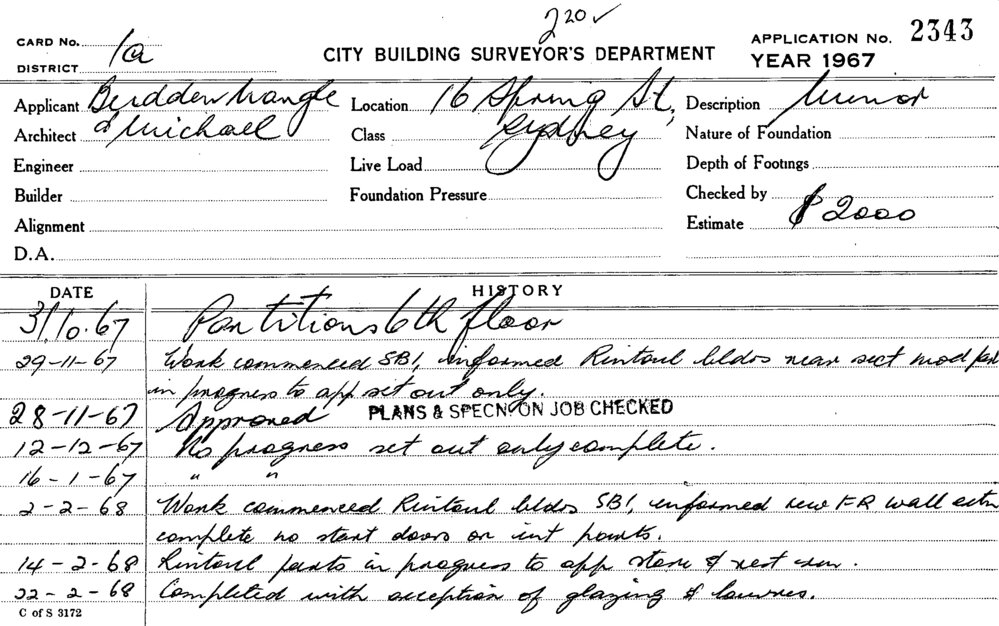 220 ✓
CARD No. 1a
DISTRICT
CITY BUILDING SURVEYOR'S DEPARTMENT
APPLICATION No. 2343
YEAR 1967
Applicant
Architect & Michael
Engineer
Builder
Alignment
D.A.
Location 16 Spring St,
Class Sydney
Live Load
Foundation Pressure
Description Minor
Nature of Foundation
Depth of Footings
Checked by
Estimate $2000
DATE HISTORY
31.10.67 Partitions 6th floor
29-11-67 Work commenced SB1, informed Rintoul bldrs new sect mod
in progress to app set out only.
28-11-67 Approved PLANS & SPECN ON JOB CHECKED
12-12-67 No progress set out only complete.
16-1-67 " "
2-2-68 Work commenced Rintoul bldrs SB1, informed new F-R wall
complete no start doors or int parts.
14-2-68 Rintoul parts in progress to app store & rest
22-2-68 Completed with exception of glazing & louvres.
C of S 3172